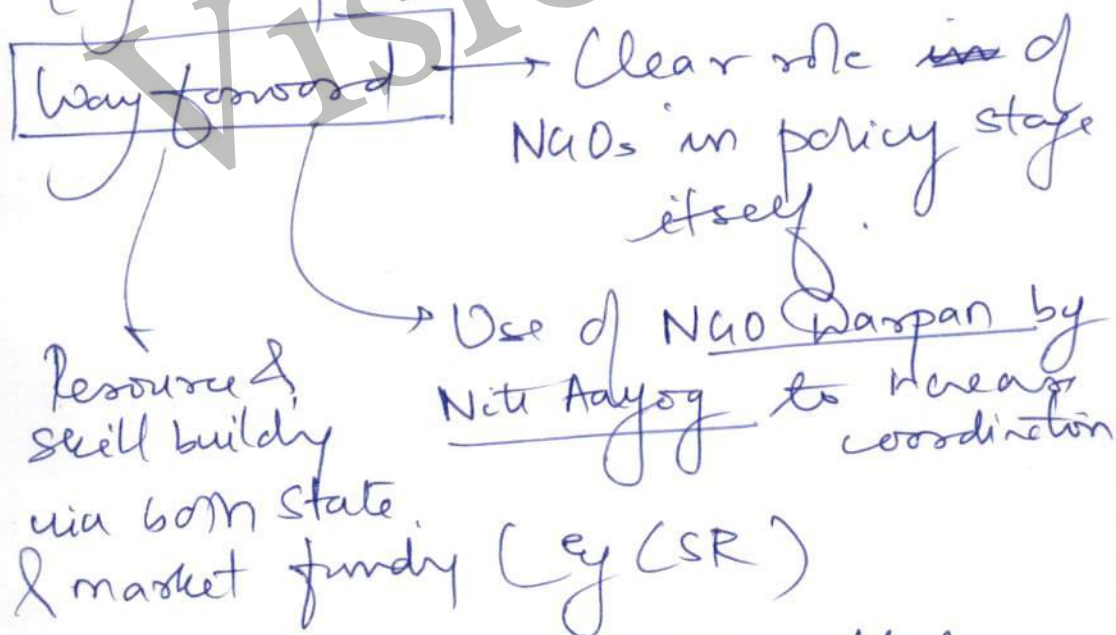 Way forward
Clear role of
NGOs in policy stage
itself.
Use of NGO Darpan by
Niti Aayog to increase
coordination
Resource &
skill building
via both state
& market funding (eg CSR)